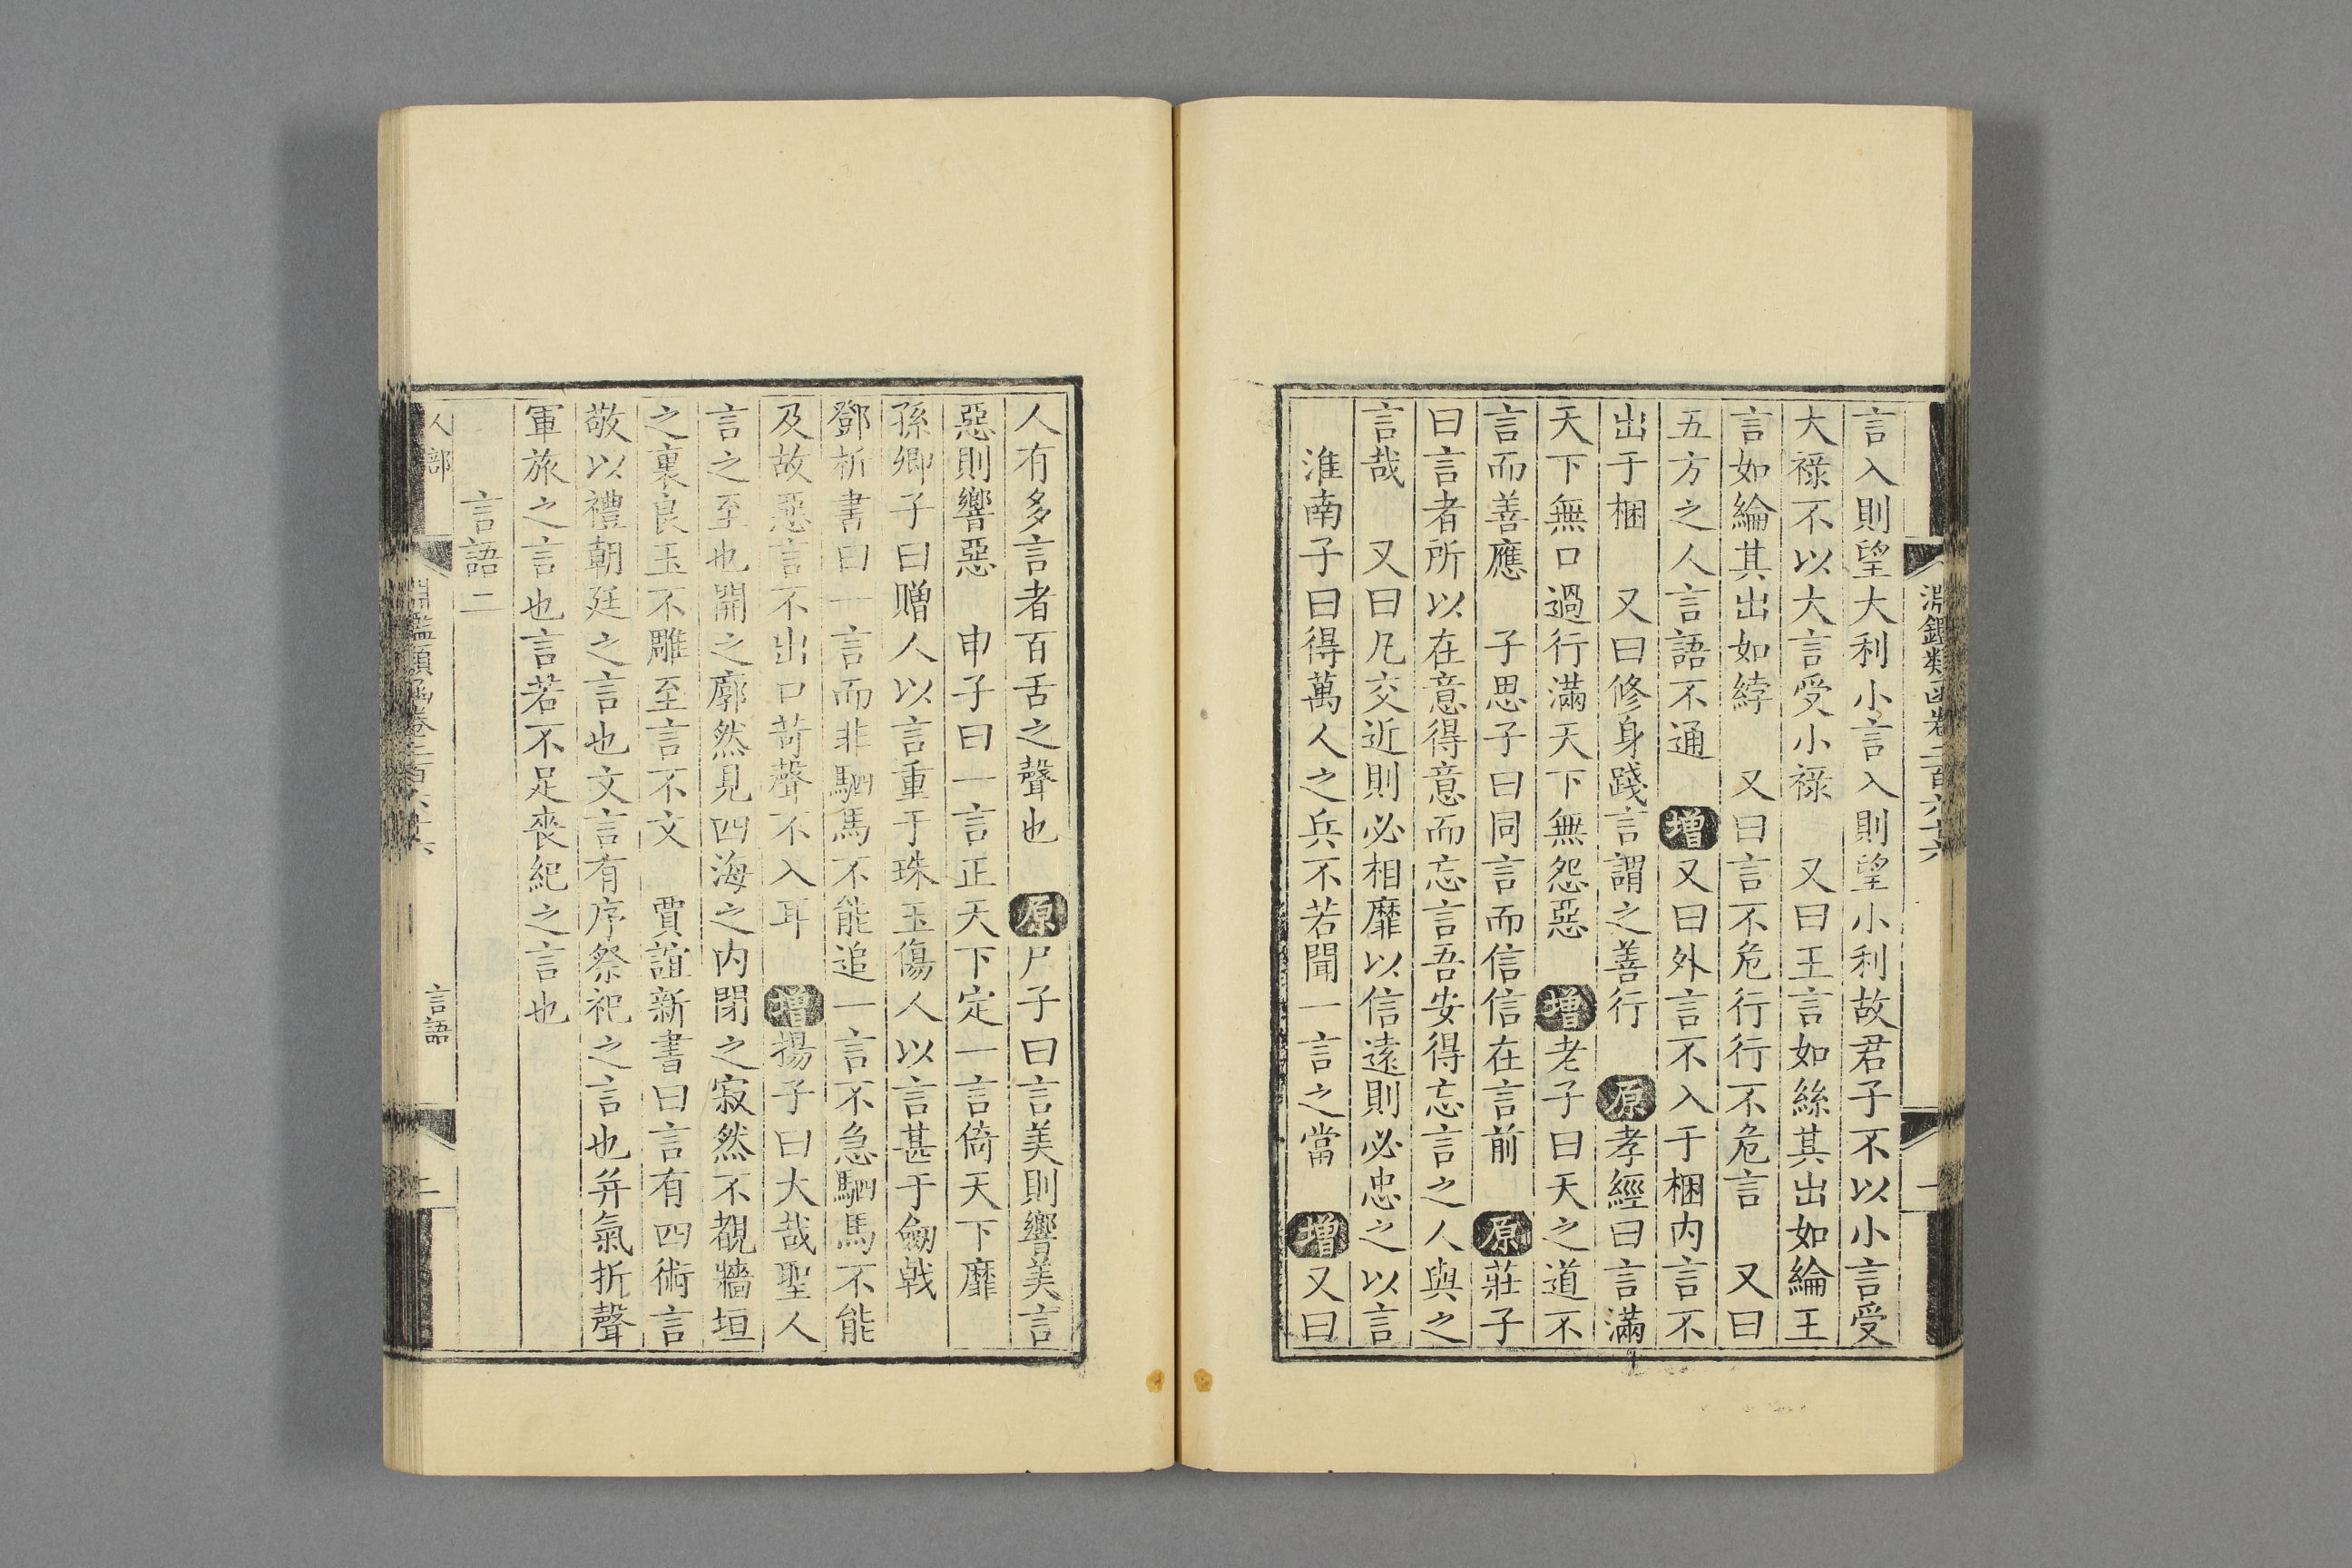 淵鑑類函卷二百六十六
一
言入則望大利小言入則望小利故君子不以小言受
大祿不以大言受小祿　又曰王言如絲其出如綸王
言如綸其出如綍　又曰言不危行行不危言　又曰
五方之人言語不通　增又曰外言不入于梱內言不
出于梱　又曰修身踐言謂之善行　原孝經曰言滿
天下無口過行滿天下無怨惡　增老子曰天之道不
言而善應　子思子曰同言而信信在言前　原莊子
曰言者所以在意得意而忘言吾安得忘言之人與之
言哉　又曰凡交近則必相靡以信遠則必忠之以言
淮南子曰得萬人之兵不若聞一言之當　增又曰
人有多言者百舌之聲也　原尸子曰言美則響美言
惡則響惡　申子曰一言正天下定一言倚天下靡
孫卿子曰贈人以言重于珠玉傷人以言甚于劒戟
鄧析書曰一言而非駟馬不能追一言不急駟馬不能
及故惡言不出口苛聲不入耳　增揚子曰大哉聖人
言之至也開之廓然見四海之內閉之寂然不覩牆垣
之裏良玉不雕至言不文　賈誼新書曰言有四術言
敬以禮朝廷之言也文言有序祭祀之言也屏氣折聲
軍旅之言也言若不足喪紀之言也
言語二
人部
淵鑑類函卷二百六十六
言語
二